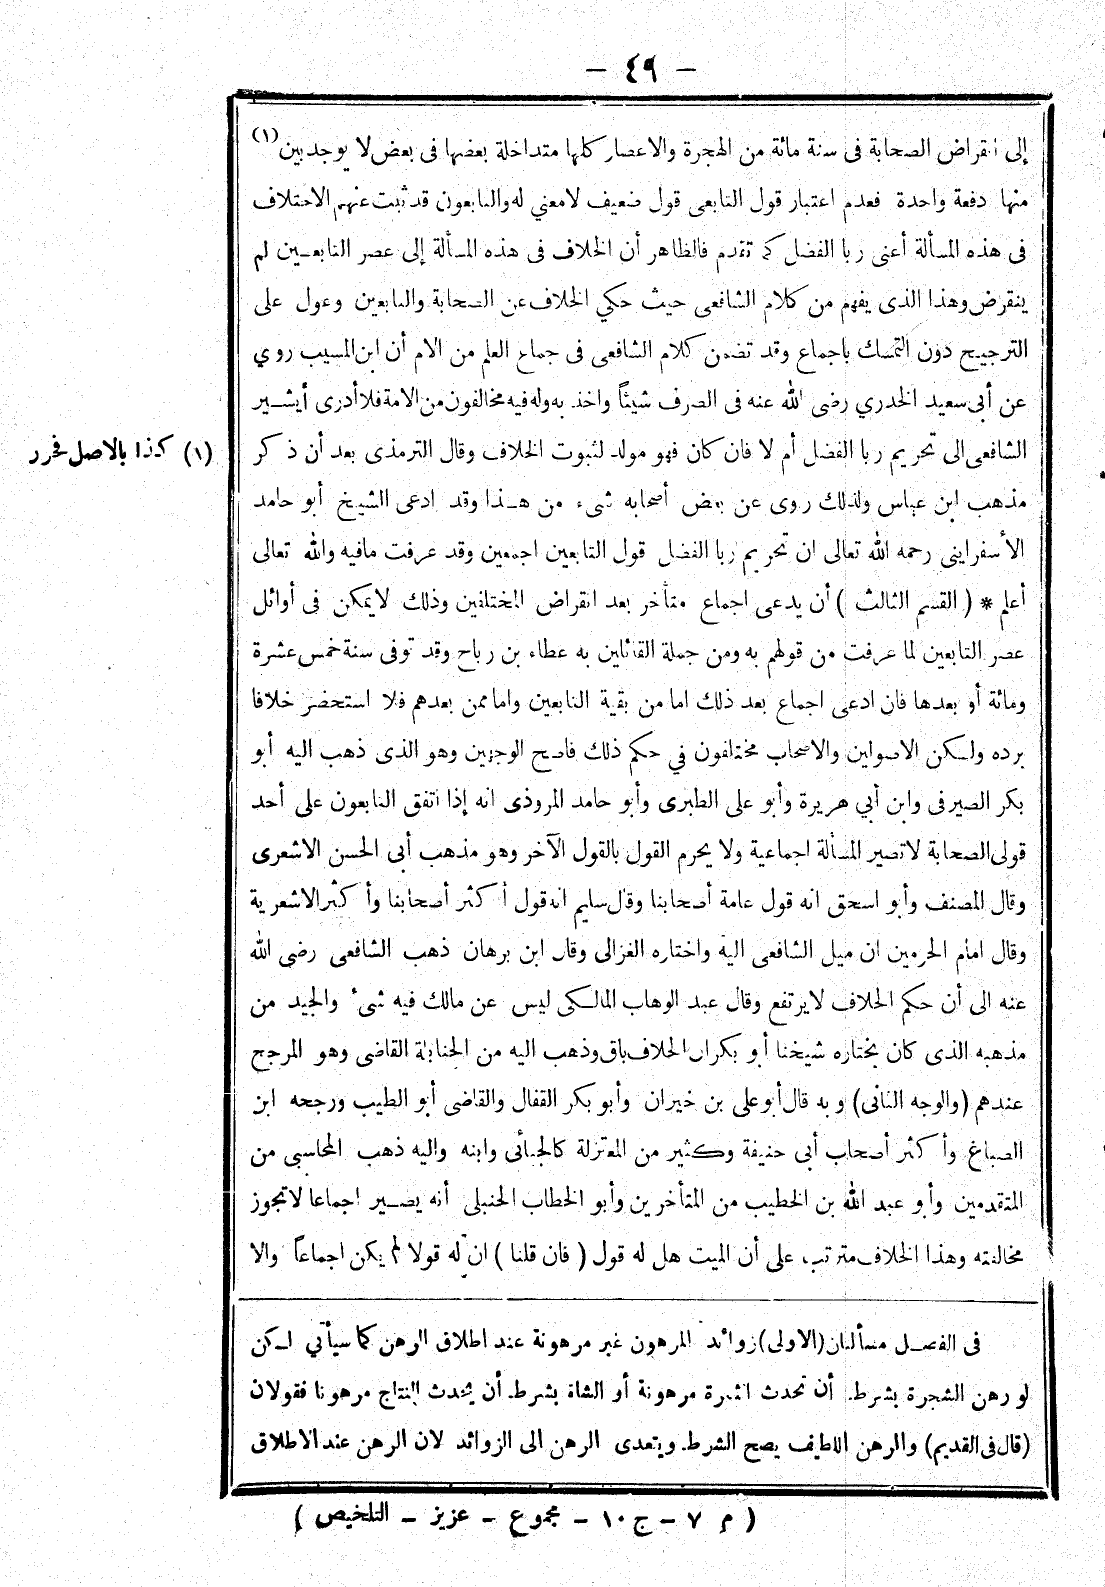 - ٤٩ -
إلى انقراض الصحابة فى سنة مائة من الهجرة والاعصار كلها متداخلة بعضها فى بعض لا يوجد بين (١)
منها دفعة واحدة فعدم اعتبار قول التابعى قول ضعيف لامعني له والتابعون قد ثبت عنهم الاختلاف
فى هذه المسألة أعنى ربا الفضل كما تقدم فالظاهر أن الخلاف فى هذه المسألة إلى عصر التابعين لم
ينقرض وهذا الذى يفهم من كلام الشافعى حيث حكي الخلاف عن الصحابة والتابعين وعول على
الترجيح دون التمسك باجماع وقد تضمن كلام الشافعى فى جماع العلم من الام أن ابن المسيب روي
عن أبى سعيد الخدري رضى الله عنه فى الصرف شيئاً واخذ به وله فيه مخالفون من الامة فلا أدرى أيشير
الشافعى الى تحريم ربا الفضل أم لا فان كان فهو مولد لثبوت الخلاف وقال الترمذى بعد أن ذكر
(١) كذا بالاصل فحرر
مذهب ابن عباس ولذلك روى عن بعض أصحابه شىء من هذا وقد ادعى الشيخ أبو حامد
الأسفراينى رحمه الله تعالى ان تحريم ربا الفضل قول التابعين اجمعين وقد عرفت مافيه والله تعالى
أعلم * ( القسم الثالث ) أن يدعى اجماع متأخر بعد انقراض المختلفين وذلك لايمكن فى أوائل
عصر التابعين لما عرفت من قولهم به ومن جملة القائلين به عطاء بن رباح وقد توفى سنة خمس عشرة
ومائة أو بعدها فان ادعى اجماع بعد ذلك اما من بقية التابعين واما ممن بعدهم فلا استحضر خلافا
برده ولكن الاصولين والاصحاب مختلفون في حكم ذلك فاصح الوجهين وهو الذى ذهب اليه أبو
بكر الصيرفى وابن أبي هريرة وأبو على الطبرى وأبو حامد المروذى انه إذا اتفق التابعون على أحد
قولى الصحابة لاتصير المسألة اجماعية ولا يحرم القول بالقول الآخر وهو مذهب أبى الحسن الاشعرى
وقال المصنف وأبو اسحق انه قول عامة أصحابنا وقال سليم انه قول أكثر أصحابنا وأكثر الاشعرية
وقال امام الحرمين ان ميل الشافعى اليه واختاره الغزالى وقال ابن برهان ذهب الشافعى رضى الله
عنه الى أن حكم الخلاف لايرتفع وقال عبد الوهاب المالكى ليس عن مالك فيه شىء والجيد من
مذهبه الذى كان يختاره شيخنا أبو بكر ان الخلاف باق وذهب اليه من الحنابلة القاضى وهو المرجح
عندهم (والوجه الثانى) وبه قال أبو على بن خيران وأبو بكر القفال والقاضى أبو الطيب ورجحه ابن
الصباغ وأكثر أصحاب أبى حنيفة وكثير من المعتزلة كالجبائى وابنه واليه ذهب المحاسبى من
المتقدمين وأبو عبد الله بن الخطيب من المتأخرين وأبو الخطاب الحنبلى أنه يصير اجماعا لاتجوز
مخالفته وهذا الخلاف مترتب على أن الميت هل له قول ( فان قلنا ) ان له قولا لم يكن اجماعاً والا
فى الفصل مسألتان (الاولى) زوائد المرهون غير مرهونة عند اطلاق الرهن كما سيأتي لكن
لو رهن الشجرة بشرط أن تحدث الثمرة مرهونة أو الشاة بشرط أن يحدث النتاج مرهونا فقولان
(قال فى القديم) والرهن اللاطيف يصح الشرط ويتعدى الرهن الى الزوائد لان الرهن عند الاطلاق
( م ٧ - ج ١٠ - مجموع - عزيز - التلخيص )